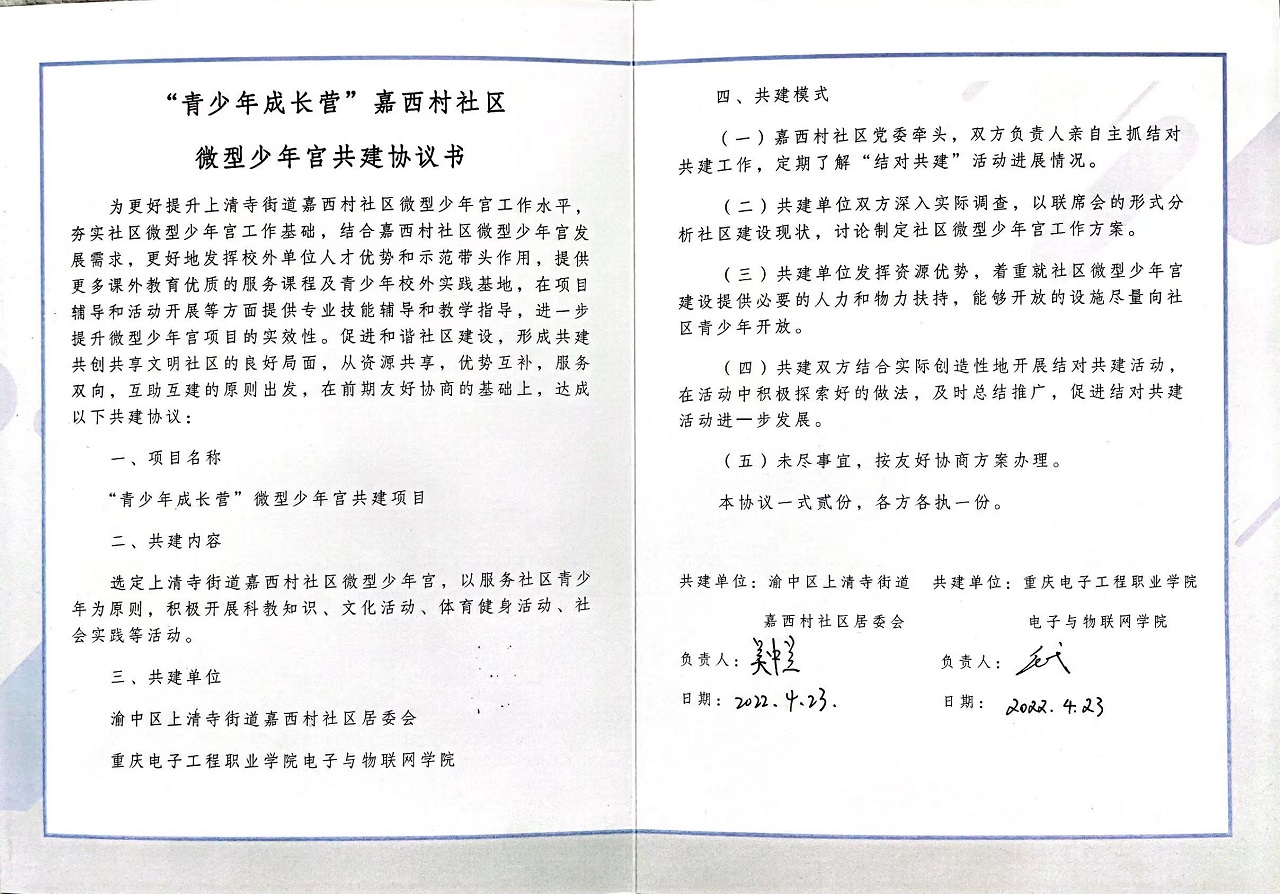 “青少年成长营”嘉西村社区
微型少年宫共建协议书
为更好提升上清寺街道嘉西村社区微型少年宫工作水平，
夯实社区微型少年宫工作基础，结合嘉西村社区微型少年宫发
展需求，更好地发挥校外单位人才优势和示范带头作用，提供
更多课外教育优质的服务课程及青少年校外实践基地，在项目
辅导和活动开展等方面提供专业技能辅导和教学指导，进一步
提升微型少年宫项目的实效性。促进和谐社区建设，形成共建
共创共享文明社区的良好局面，从资源共享，优势互补，服务
双向，互助互建的原则出发，在前期友好协商的基础上，达成
以下共建协议：
一、项目名称
“青少年成长营”微型少年宫共建项目
二、共建内容
选定上清寺街道嘉西村社区微型少年宫，以服务社区青少
年为原则，积极开展科教知识、文化活动、体育健身活动、社
会实践等活动。
三、共建单位
渝中区上清寺街道嘉西村社区居委会
重庆电子工程职业学院电子与物联网学院
四、共建模式
（一）嘉西村社区党委牵头，双方负责人亲自主抓结对
共建工作，定期了解“结对共建”活动进展情况。
（二）共建单位双方深入实际调查，以联席会的形式分
析社区建设现状，讨论制定社区微型少年宫工作方案。
（三）共建单位发挥资源优势，着重就社区微型少年宫
建设提供必要的人力和物力扶持，能够开放的设施尽量向社
区青少年开放。
（四）共建双方结合实际创造性地开展结对共建活动，
在活动中积极探索好的做法，及时总结推广，促进结对共建
活动进一步发展。
（五）未尽事宜，按友好协商方案办理。
本协议一式贰份，各方各执一份。
共建单位：渝中区上清寺街道 共建单位：重庆电子工程职业学院
嘉西村社区居委会 电子与物联网学院
负责人： 负责人：
日期：2022.4.23. 日期：2022.4.23